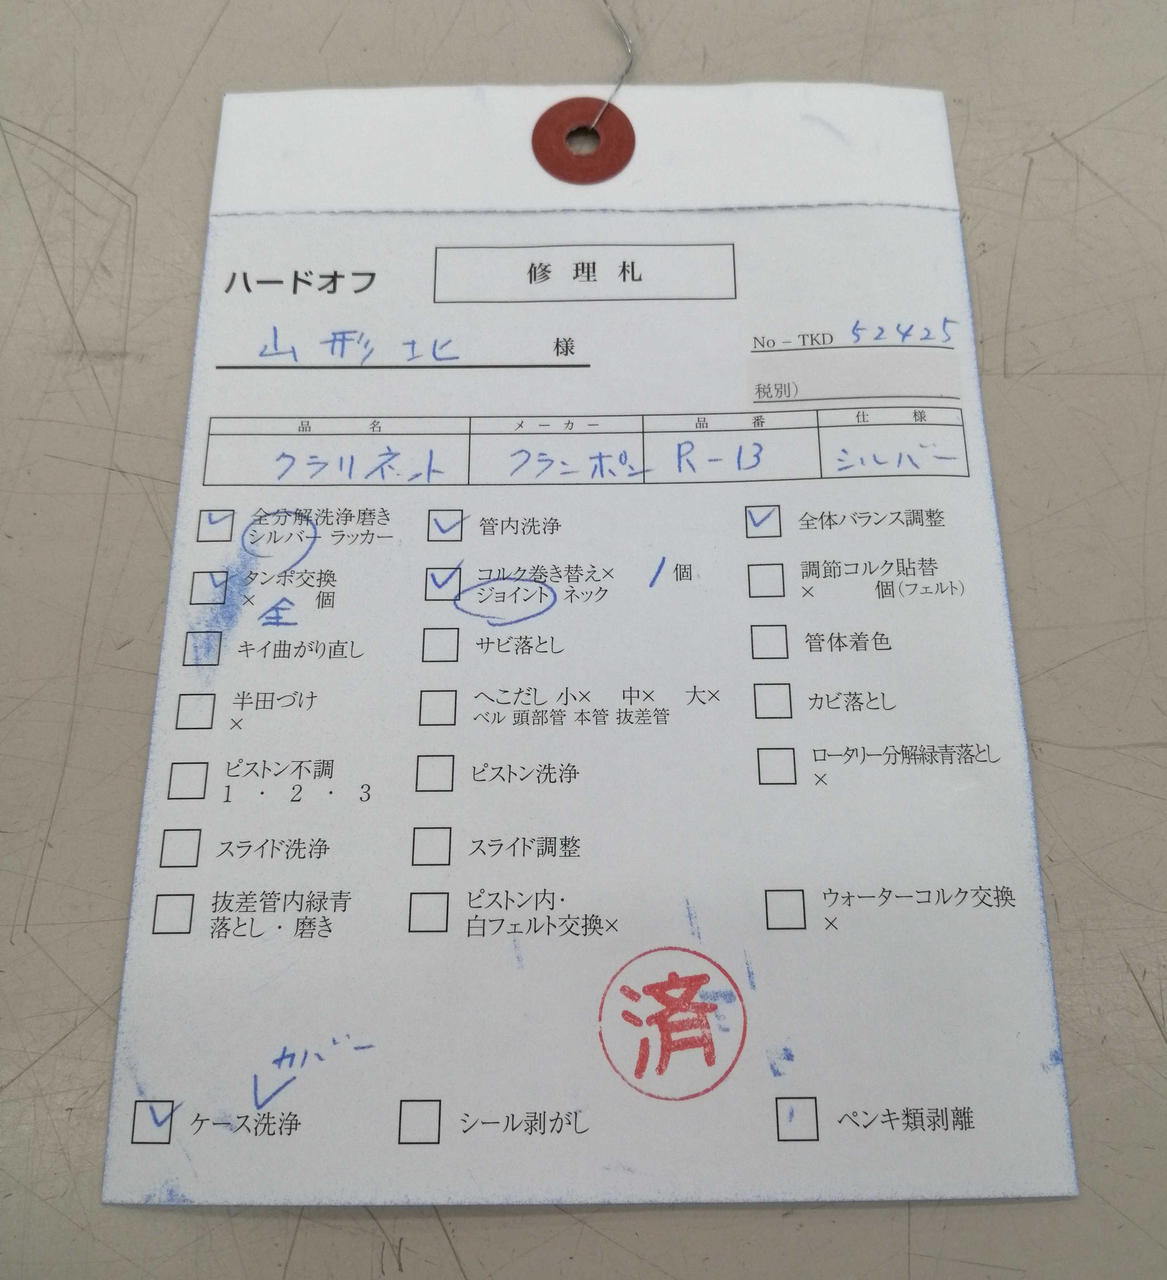 ハードオフ
修理札
山形北 様
No－TKD 52425
税別）
品名 メーカー 品番 仕様
クラリネット クランポン R-13 シルバー
全分解洗浄磨き
シルバー ラッカー
管内洗浄
全体バランス調整
タンポ交換
× 全 個
コルク巻き替え× 1 個
ジョイント ネック
調節コルク貼替
× 個(フェルト)
キイ曲がり直し
サビ落とし
管体着色
半田づけ
×
へこだし 小× 中× 大×
ベル 頭部管 本管 抜差管
カビ落とし
ピストン不調
1 ・ 2 ・ 3
ピストン洗浄
ロータリー分解緑青落とし
×
スライド洗浄
スライド調整
抜差管内緑青
落とし・磨き
ピストン内・
白フェルト交換×
ウォーターコルク交換
×
済
カバー
ケース洗浄
シール剥がし
ペンキ類剥離